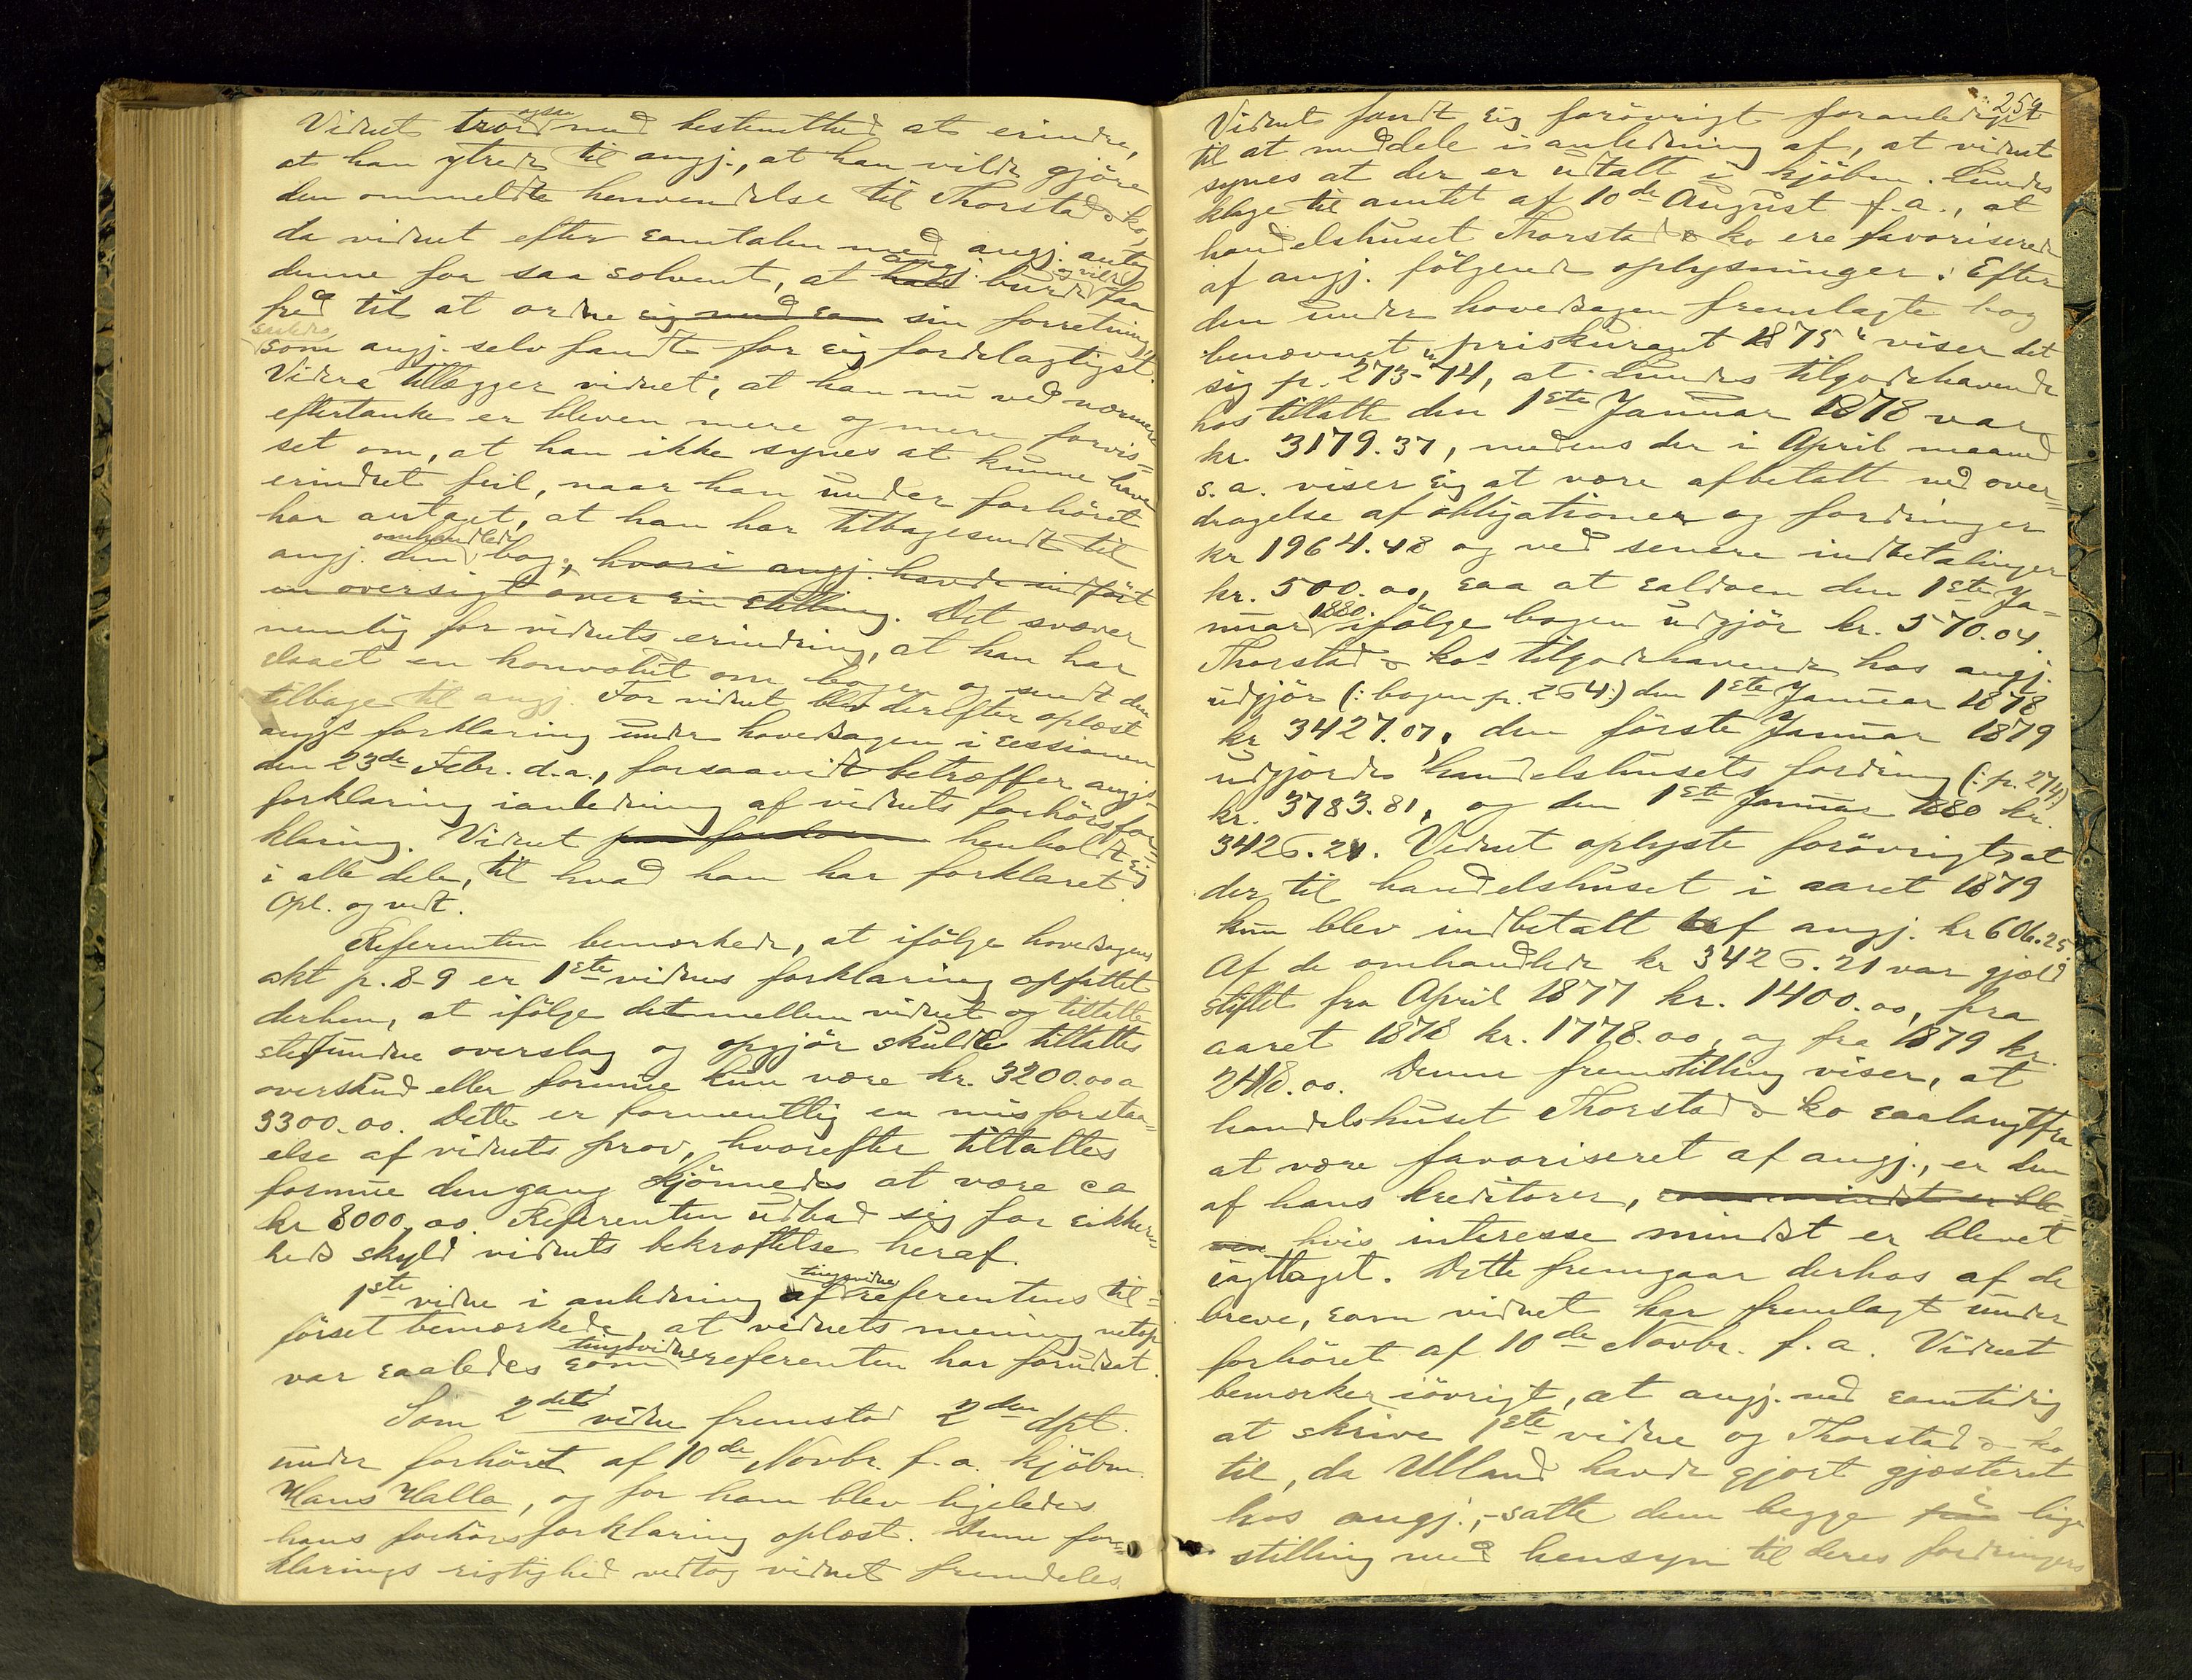 Vidnet troede ogsaa med bestemthed at erindre,
at han ytrede til angj., at han vilde gjöre
den ommeldte henvendelse til Thorstad & ko,
da vidnet efter samtalen med angj. antog
denne for saa solvent, at hans angj. burde og vilde faa
fred til at ordne sig med sa sin forretning
saaledes som angj. selv fandt for sig fordelagtigst.
Videre tillægger vidnet, at han nu ved nærmere
eftertanke er bleven mere og mere forvis=
set om, at han ikke synes at kunne have
erindret feil, naar han under forhöret
har antaget, at han har tilbagesendt til
angj. den omhandlede bog, hvori angj. havde indfört
en oversigt over sin stilling. Det svæver
nemlig for vidnets erindring, at han har
slaaet en konvolut om bogen og sendt den
tilbage til angj. For vidnet blev derefter oplæst
angjs forklaring under hovedsagen i sessionen
den 23de Febr. d. a., forsaavidt betræffer angjs
forklaring i anledning af vidnets forhörsfor=
klaring. Vidnet henholdt sig
i alle dele, til hvad han har forklaret.
Opl. og vedt.
Referenten bemærkede, at ifölge hovedsagens
akt p. 8-9 er 1ste vidnes forklaring opfattet
derhen, at ifölge det mellem vidnet og tiltalte
stedfundne overslag og opgjör skulde tiltaltes
overskud eller formue kun være kr. 3200.00 a
3300.00. Dette er formentlig en misforstaa=
else af vidnets prov, hvorefter tiltaltes
formue dengang skjönnedes at være ca
kr 8000.00. Referenten udbad sig for sikker=
heds skyld vidnets bekræftelse heraf.
1ste vidne i anledning af tingsvidne referentens til=
förset bemærkede, at vidnets mening netop
var saaledes som tingsvidne referenten har forudsat.
Som 2det vidne fremstod 2den dpt.
under forhöret af 10de Novbr. f. a. kjöbm.
Hans Halla, og for ham blev ligeledes
hans forhörsforklaring oplæst. Denne for=
klarings rigtighed vedtog vidnet fremdeles.
259
Vidnet fandt sig forövrigt foranlediget
til at meddele i anledning af, at vidnet
synes at der er udtalt i kjöbm. Lundes
klage til amtet af 10de August f. a., at
handelshuset Thorstad & ko ere favoriserede
af angj. fölgende oplysninger: Efter
den under hovedsagen fremlagte bog
benævnet „priskurant 1875“ viser det
sig p. 273-74, at Lundes tilgodehavende
hos tiltalte den 1ste Januar 1878 var
kr. 3179.37, medens der i April maaned
s. a. viser sig at være afbetalt ved over=
dragelse af obligationer og fordringer
kr 1964.48 og ved senere indbetalinger
kr. 500.00, saa at saldoen den 1ste Ja=
nuar 1880 ifölge bogen udgjör kr. 570.04.
Thorstad & kos tilgodehavende hos angj.
udgjör (: bogen p. 264:) den 1ste Januar 1878
kr 3427.07, den förste Januar 1879
udgjorde handelshusets fordring (: p. 274:)
kr. 3783.81, og den 1ste Januar 1880 kr.
3426.21. Vidnet oplyste forövrigt, at
der til handelshuset i aaret 1879
kun blev indbetalt af angj. kr 606.25
Af de omhandlede kr 3426.21 var gjæld
stiftet fra April 1877 kr. 1400.00, fra
aaret 1878 kr. 1778.00, og fra 1879 kr.
248.00. Denne fremstilling viser, at
handelshuset Thorstad & ko saalangt fra
at være favoriseret af angj., er den
af hans kreditorer, som mindst er ble=
ven hvis interesse mindst er blevet
iagttaget. Dette fremgaar derhos af de
breve, som vidnet har fremlagt under
forhöret af 10de Novbr. f. a. Vidnet
bemærker iövrigt, at angj. ved samtidig
at skrive 1ste vidne og Thorstad & ko
til, da Ulland havde gjort gjæsteret
hos angj., satte dem begge paa i lige
stilling med hensyn til deres fordringers